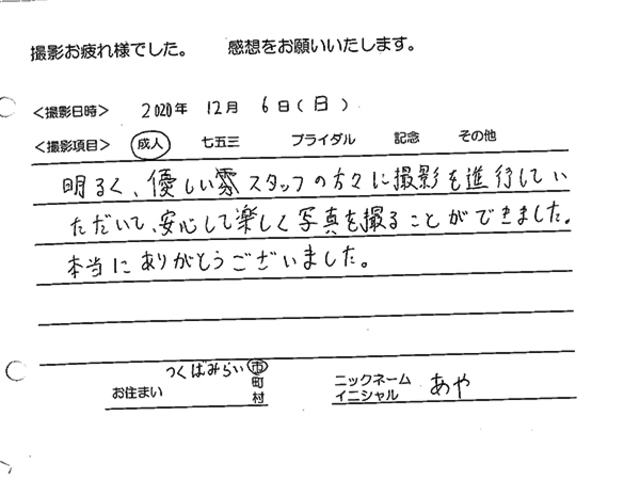 撮影お疲れ様でした。 感想をお願いいたします。
<撮影日時> 2020年 12月 6日(日)
<撮影項目> 成人 七五三 ブライダル 記念 その他
明るく、優しいスタッフの方々に撮影を進行してい
ただいて、安心して楽しく写真を撮ることができました。
本当にありがとうございました。
お住まい つくばみらい 市 町 村
ニックネーム イニシャル あや